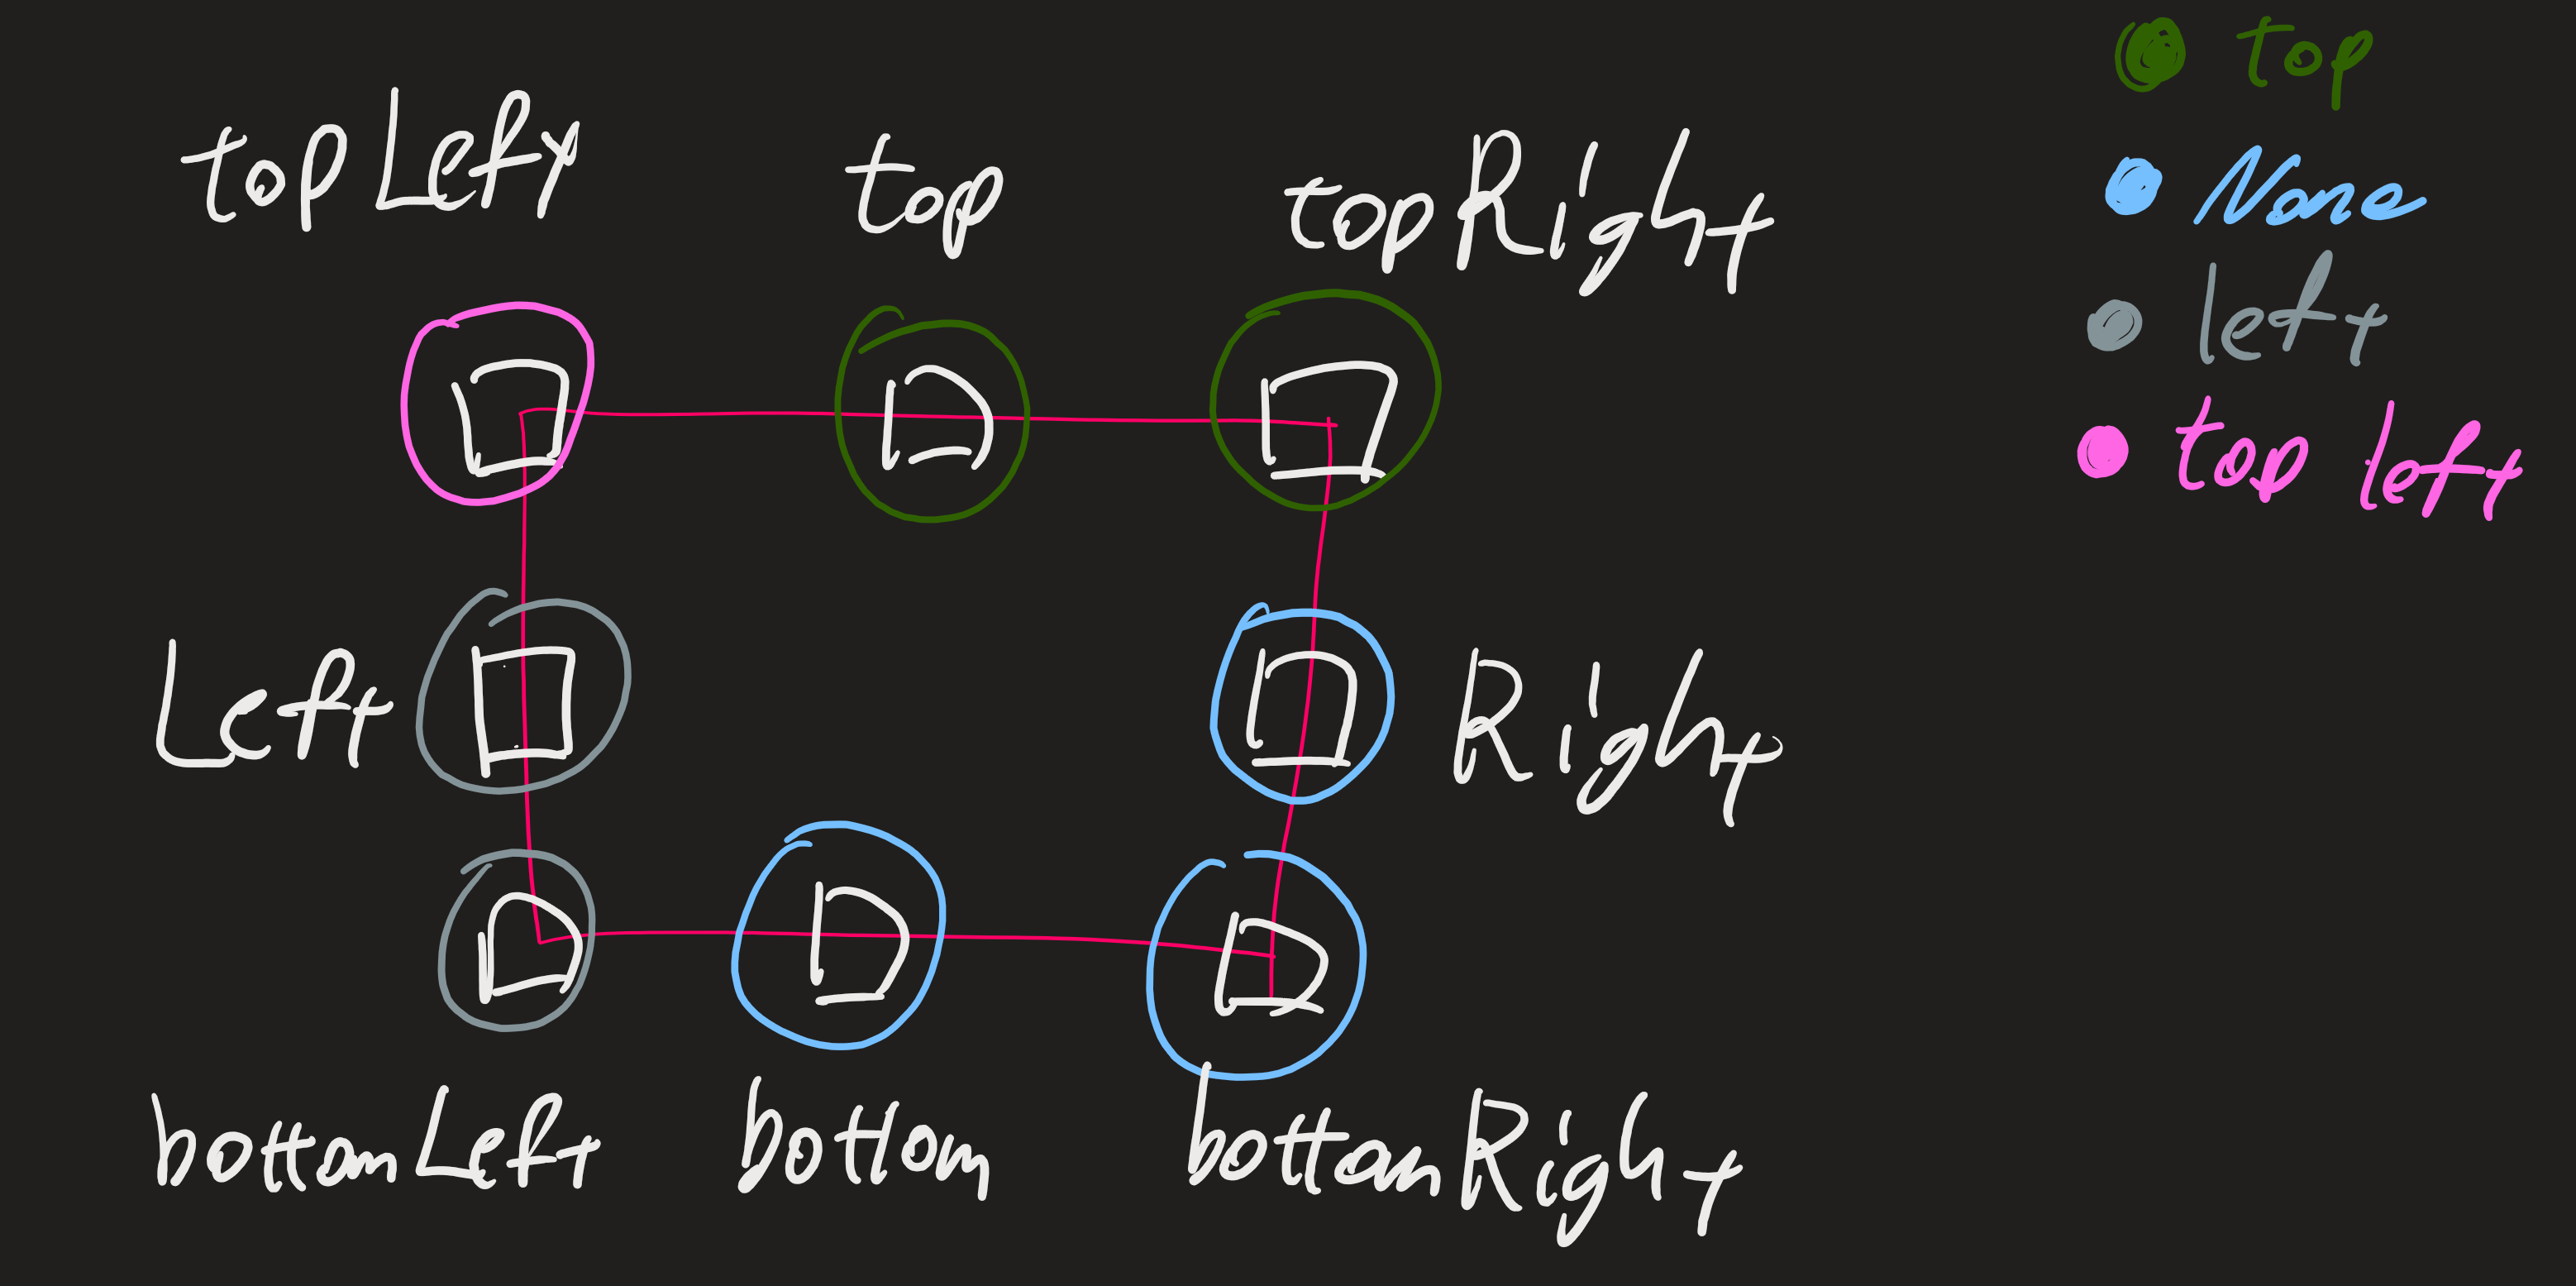 topLeft
top
topRight
Left
Right
bottomLeft
bottom
bottomRight
top
None
left
top left